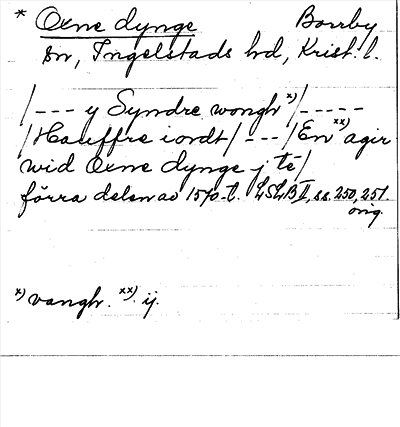 * Oxne dynge Borrby
sn, Ingelstads hd, Krist. l.
/--- y Syndre wongh x)/-----
/Hauffre iordt/---/En xx) agir
wid Oxne dynge j te/
förra delen av 1570-t. LSLB II, ss. 250, 251.
orig.
x) vangh. xx) ij.